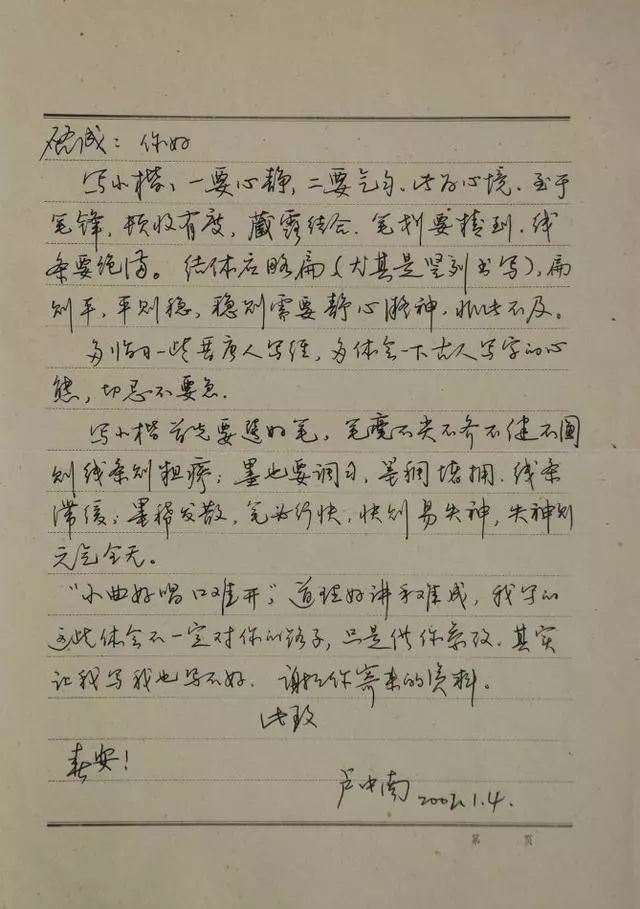 诚：你好
写小楷，一要心静，二要气匀，此为心境。至于
笔锋，顿收有度，藏露结合，笔划要精到，线
条要饱满。结体应略扁（尤其是竖列书写），扁
则平，平则稳，稳则需要静心凝神，非此不及。
多临习一些晋唐人写经，多体会一下古人写字的心
态，切忌不要急。
写小楷首先要选好笔，笔度不尖不齐不健不圆
则线条则粗疏；墨也要调匀，墨稠堵拥，线条
滞缓；墨稀发散，笔必行快，快则易失神，失神则
元气全无。
“小曲好唱口难开”，道理好讲手难成，我写的
这些体会不一定对你的路子，只是供你参考。其实
让我写我也写不好。谢谢你寄来的资料。
此致
春安！
卢中南 2002.1.4.
第 页